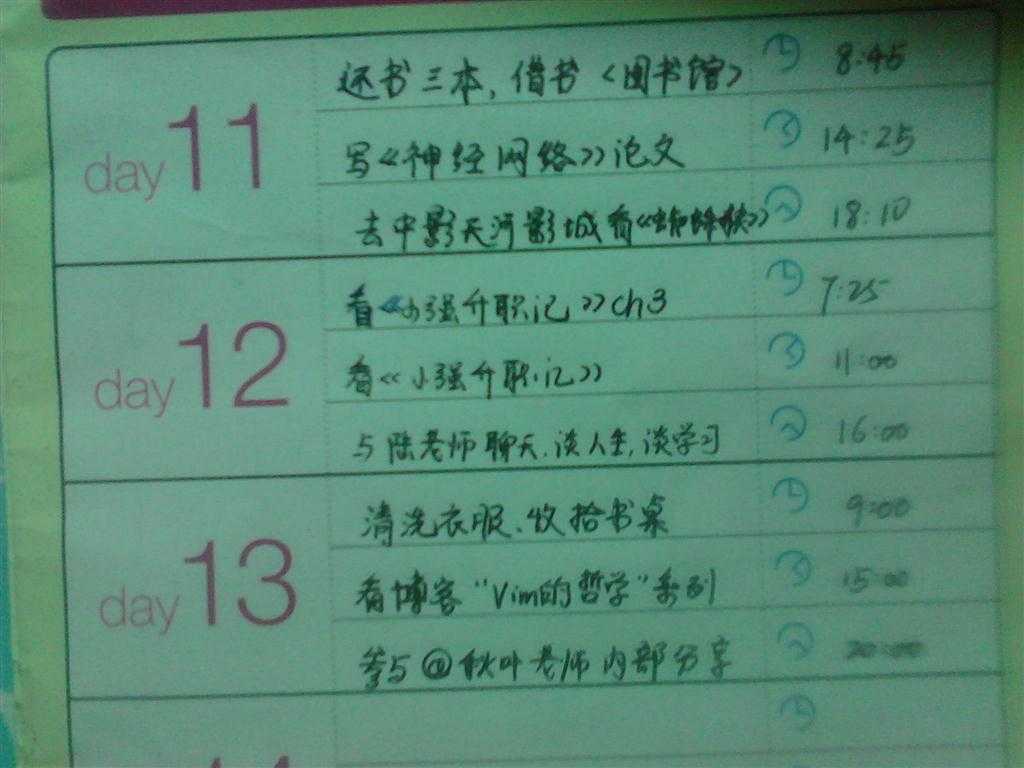 day 11
还书三本, 借书〈图书馆〉 8:45
写《神经网络》论文 14:25
去中影天河影城看《蜘蛛侠》 18:10
day 12
看《小强升职记》ch3 7:25
看《小强升职记》 11:00
与陆老师聊天.谈人生,谈学习 16:00
day 13
清洗衣服、收拾书桌 9:00
看博客“Vim的哲学”系列 15:00
参与@秋叶老师内部分享 20:00